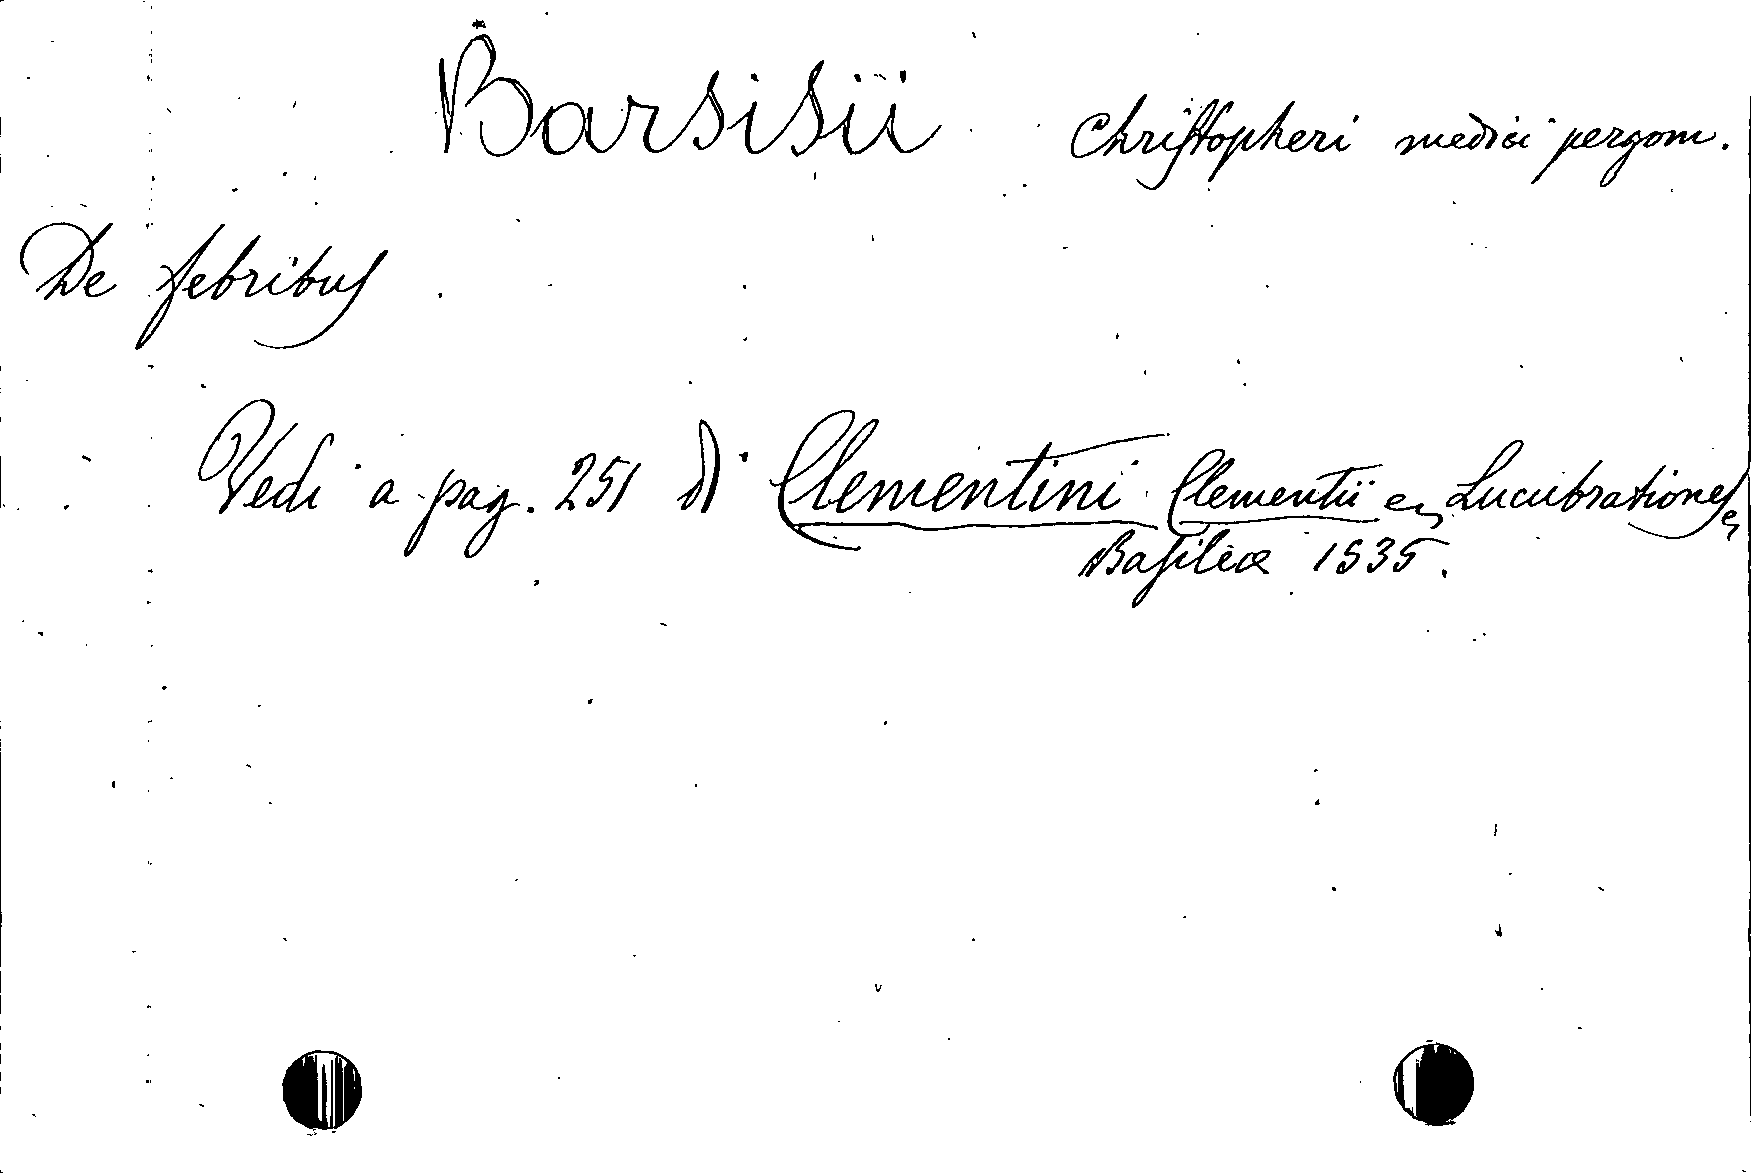 Barsisii Christopheri medici pergom.
De febribus
Vedi a pag. 251 di Clementini Clementii en Lucubrationes
Basileæ 1535.